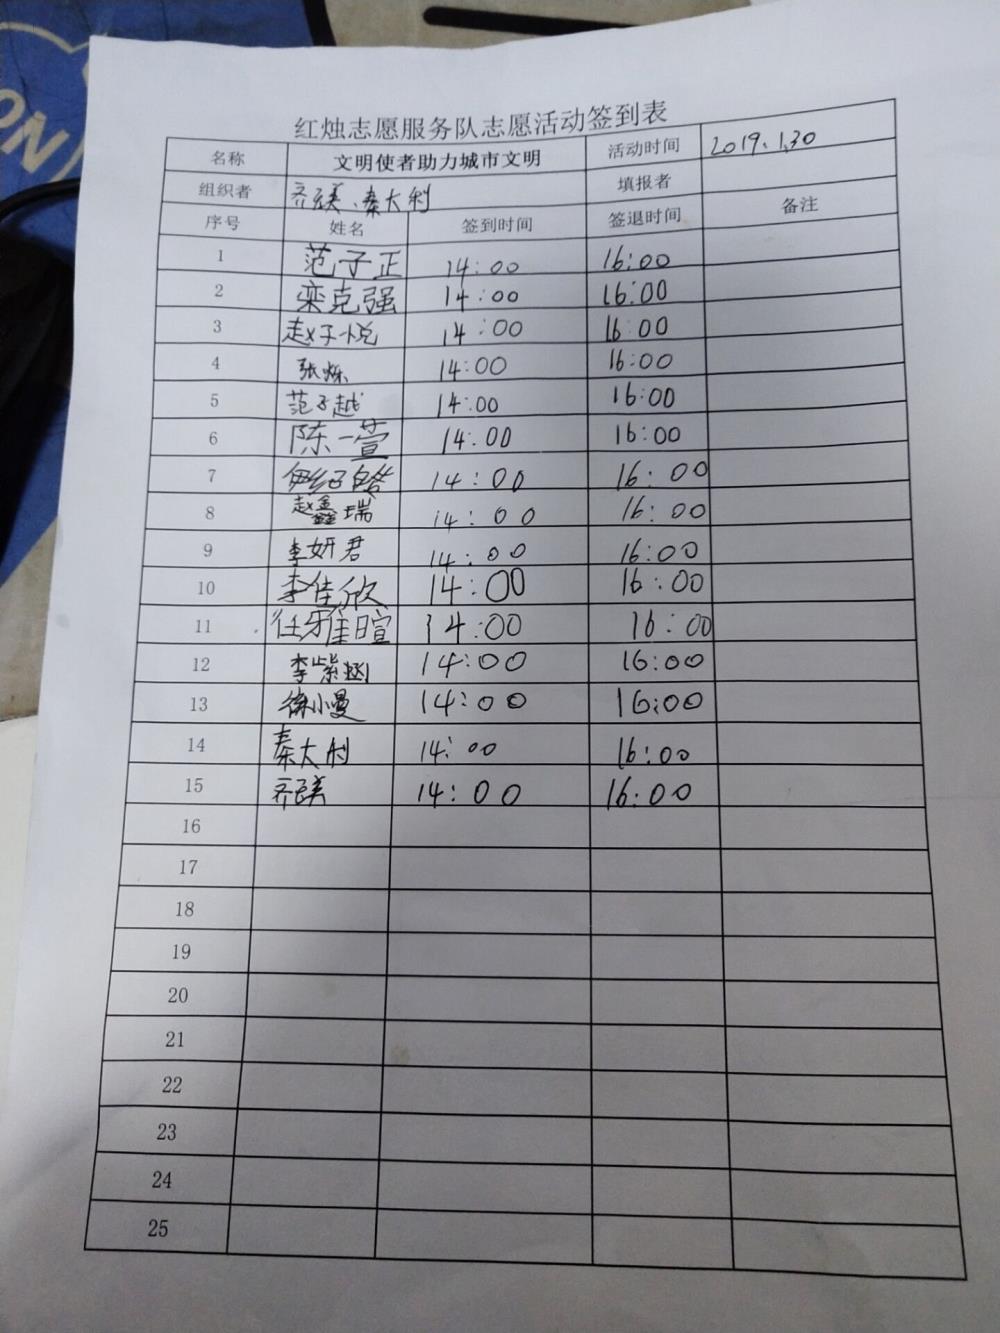 ON
红烛志愿服务队志愿活动签到表
名称 文明使者助力城市文明 活动时间 2019.1.30
组织者 秦大利 填报者
序号 姓名 签到时间 签退时间 备注
1 范子正 14:00 16:00
2 栾克强 14:00 16:00
3 赵子悦 14:00 16:00
4 张烁 14:00 16:00
5 范子越 14:00 16:00
6 陈一萱 14:00 16:00
7 14:00 16:00
8 赵鑫瑞 14:00 16:00
9 李妍君 14:00 16:00
10 李佳欣 14:00 16:00
11 任雅暄 14:00 16:00
12 李紫涵 14:00 16:00
13 徐小曼 14:00 16:00
14 秦大利 14:00 16:00
15 14:00 16:00
16
17
18
19
20
21
22
23
24
25